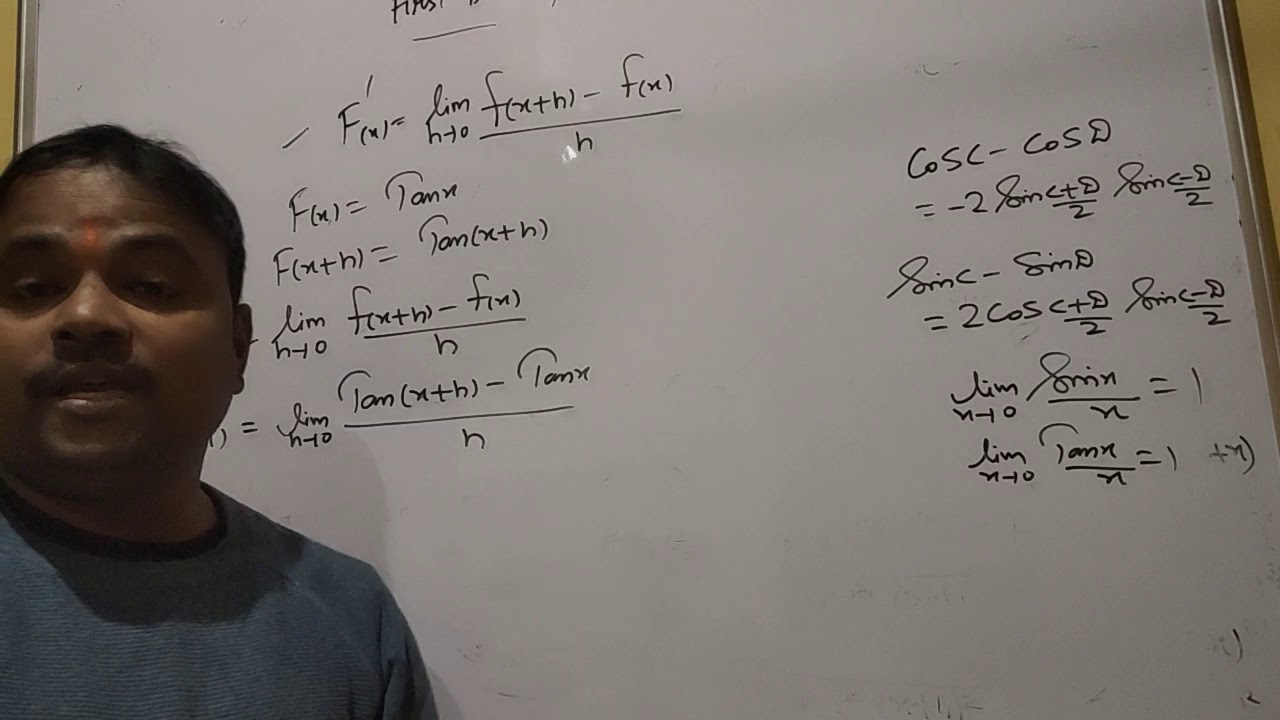 First
F'(x) = lim h→0 f(x+h) - f(x) / h
F(x) = Tanx
F(x+h) = Tan(x+h)
lim h→0 f(x+h) - f(x) / h
= lim h→0 Tan(x+h) - Tanx / h
CosC - CosD
= -2 Sin C+D/2 Sin C-D/2
SinC - SinD
= 2 Cos C+D/2 Sin C-D/2
lim x→0 Sinx / x = 1
lim x→0 Tanx / x = 1